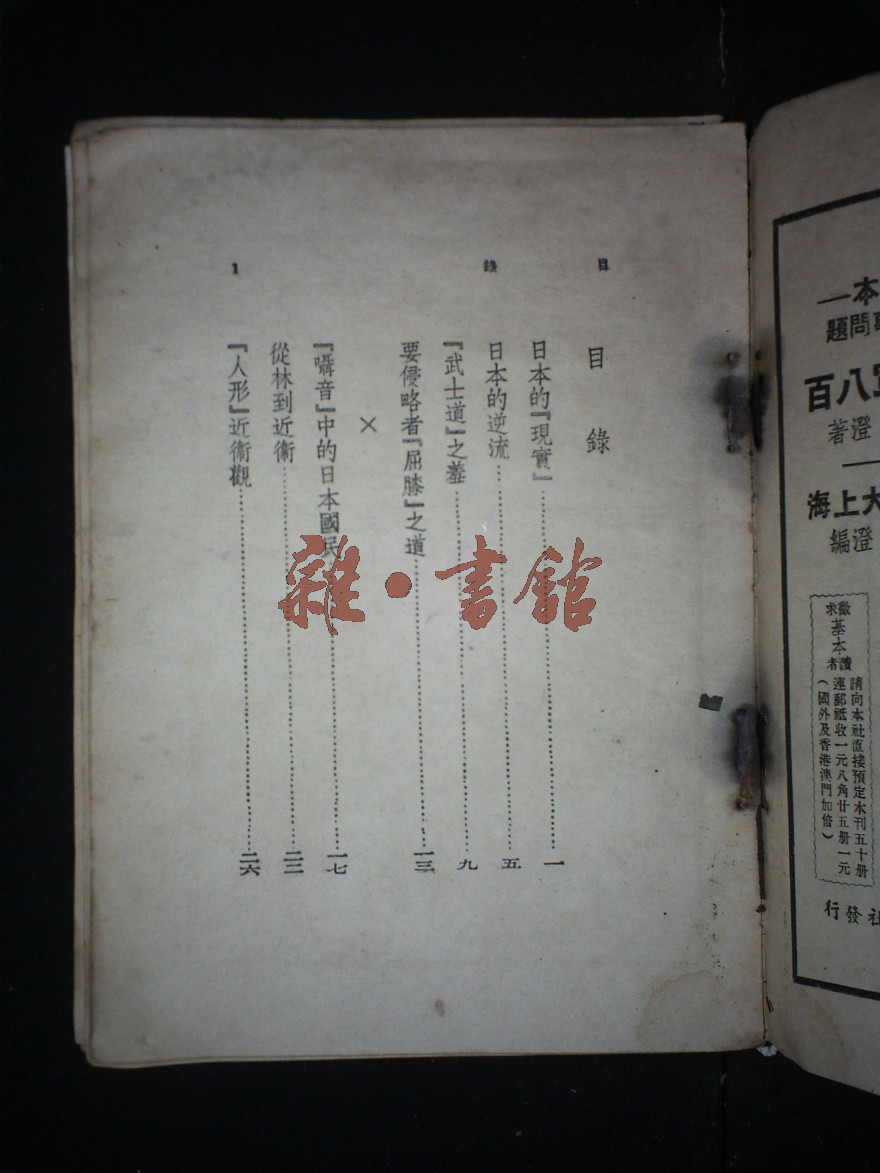 目 錄
目 錄
日本的『現實』……一
日本的逆流……五
『武士道』之羞……九
要侵略者『屈膝』之道……一三
×
『囁音』中的日本國民……一七
從林到近衛……二二
『人形』近衛觀……二六
1
雜·書館
本一
問題
八百
澄著
大上海
澄編
徵求基本讀者
請向本社直接預定本刊五十冊
連郵祗收一元八角廿五冊一元
(國外及香港澳門加倍)
社發行